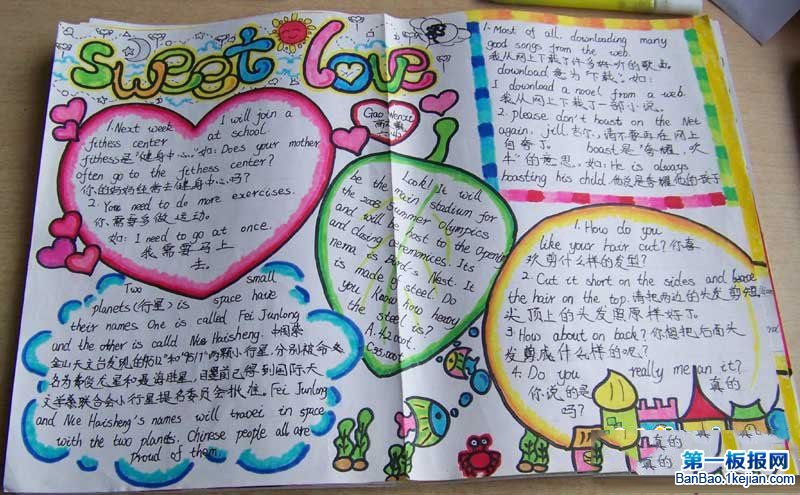 sweet love
Gao Wenxi
1. Next week I will join a
fitness center at school.
fitness是"健身中心。"如: Does your mother
often go to the fitness center?
你的妈妈经常去健身中心吗?
2. You need to do more exercises.
你需要多做运动。
如: I need to go at once.
我需要马上
去。
Look! It will
be the main stadium for
the 2008 Summer Olympics
and will be host to the Opening
and closing ceremonies. Its
nema is Bird's Nest. It
is made of steel. Do
you know how heavy
the steel is?
A. 42000t.
C35000t.
1. Most of all. downloading many
good songs from the web.
我从网上下载了许多好听的歌曲
download 意为"下载"。如:
I download a novel from a web.
我从网上下载了一部小说。
2. please don't boast on the Net
again. jill 吉尔,请不要再在网上
自夸了。 boast是"夸耀,吹
牛"的意思。如: He is always
boasting his child. 他总是夸耀他的孩子
1. How do you
like your hair cut? 你喜
欢剪什么样的发型?
2. Cut it short on the sides and
the hair on the top. 请把两边的头发剪短
头顶上的头发照原样好了。
3. How about on back? 你想把后面头
发剪成什么样的呢?
4. Do you really mean it?
你说的是 真的
吗?
真的 真
真的 真的
Two small
planets(行星) is space have
their names One is called Fei Junlong
and the other is called Nie Haisheng. 中国紫
金山天文台发现的"9512"和"9517"两颗小行星,分别被命
名为费俊龙星和聂海胜星,目前已得到国际天
文学联合会小行星提名委员会批准。Fei Junlong
and Nie Haisheng's names will travel in space
with the two planets. Chinese people all are
proud of them
第一板报网
BanBao.1kejian.com